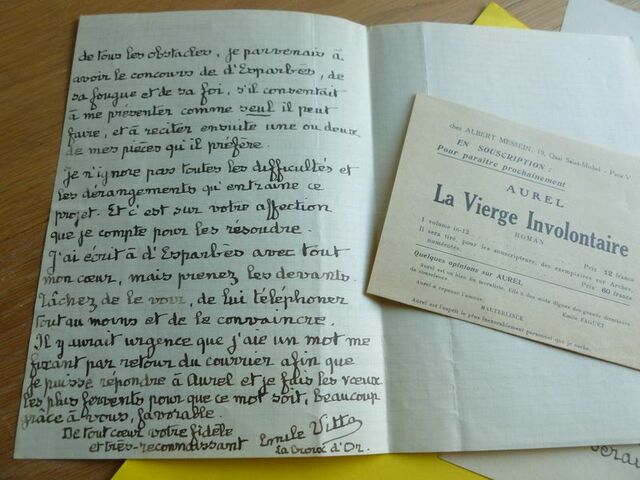 de tous les obstacles, je parvenais à
avoir le concours de d'Esparbès, de
sa fougue et de sa foi, s'il consentait
à me présenter comme seul il peut
faire, et à réciter ensuite une ou deux
de mes pièces qu'il préfère.
Je n'ignore pas toutes les difficultés et
les dérangements qu'entraîne ce
projet. Et c'est sur votre affection
que je compte pour les résoudre.
J'ai écrit à d'Esparbès avec tout
mon cœur, mais prenez les devants.
Tâchez de le voir, de lui téléphoner
tout au moins et de le convaincre.
Il y aurait urgence que j'aie un mot me
fixant par retour du courrier afin que
je puisse répondre à Aurel et je fais les vœux
les plus fervents pour que ce mot soit, beaucoup
grâce à vous, favorable.
De tout cœur votre fidèle
et très-reconnaissant
Emile Vitta
La Croix d'Or.
chez ALBERT MESSEIN, 19, Quai Saint-Michel - Paris V
EN SOUSCRIPTION :
Pour paraître prochainement
AUREL
La Vierge Involontaire
ROMAN
1 volume in-12 Prix 12 francs
Il sera tiré, pour les souscripteurs, des exemplaires sur Arches,
numérotés. Prix 60 francs
Quelques opinions sur AUREL
Aurel est un bien fin moraliste. Elle a des mots dignes des grands directeurs
de conscience.
Emile FAGUET
Aurel a repensé l'amour.
MAETERLINCK
Aurel est l'esprit le plus inexorablement personnel que je sache.